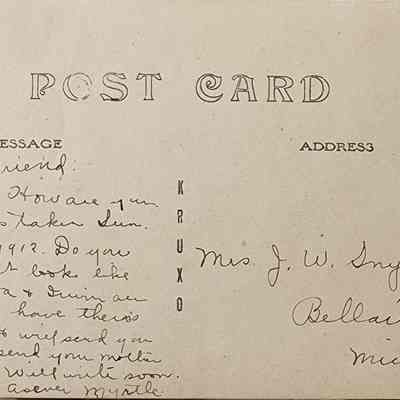 POST CARD
ESSAGE
ADDRESS
riend:
How are you
s taken Sun.
1912. Do you
t looks like
a &
have theirs
& will send you
send your mother
Will write soon.
as ever Myrtle
KRUXO
Mrs. J. W. Sny
Bellai
Mic